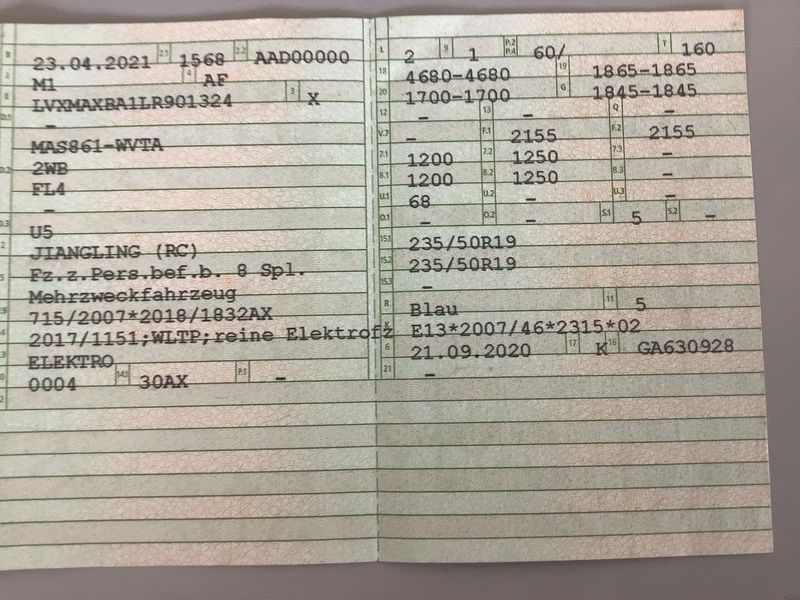 B 23.04.2021 2.1 1568 2.2 AAD00000
J M1 4 AF
E LVXMAXBA1LR901324 3 X
D.1 –
MAS861-WVTA
D.2 2WB
FL4
–
D.3 U5
2 JIANGLING (RC)
5 Fz.z.Pers.bef.b. 8 Spl.
Mehrzweckfahrzeug
V.9 715/2007*2018/1832AX
14 2017/1151;WLTP;reine Elektrofz
P.3 ELEKTRO
10 0004 14.1 30AX P.1 –
22
L 2 9 1 P.2 P.4 60/ T 160
18 4680-4680 19 1865-1865
20 1700-1700 G 1845-1845
12 – 13 – Q –
V.7 – F.1 2155 F.2 2155
7.1 1200 7.2 1250 7.3 –
8.1 1200 8.2 1250 8.3 –
U.1 68 U.2 – U.3 –
O.1 – O.2 – S.1 5 S.2 –
15.1 235/50R19
15.2 235/50R19
15.3 –
R Blau 11 5
K E13*2007/46*2315*02
6 21.09.2020 17 K 16 GA630928
21 –